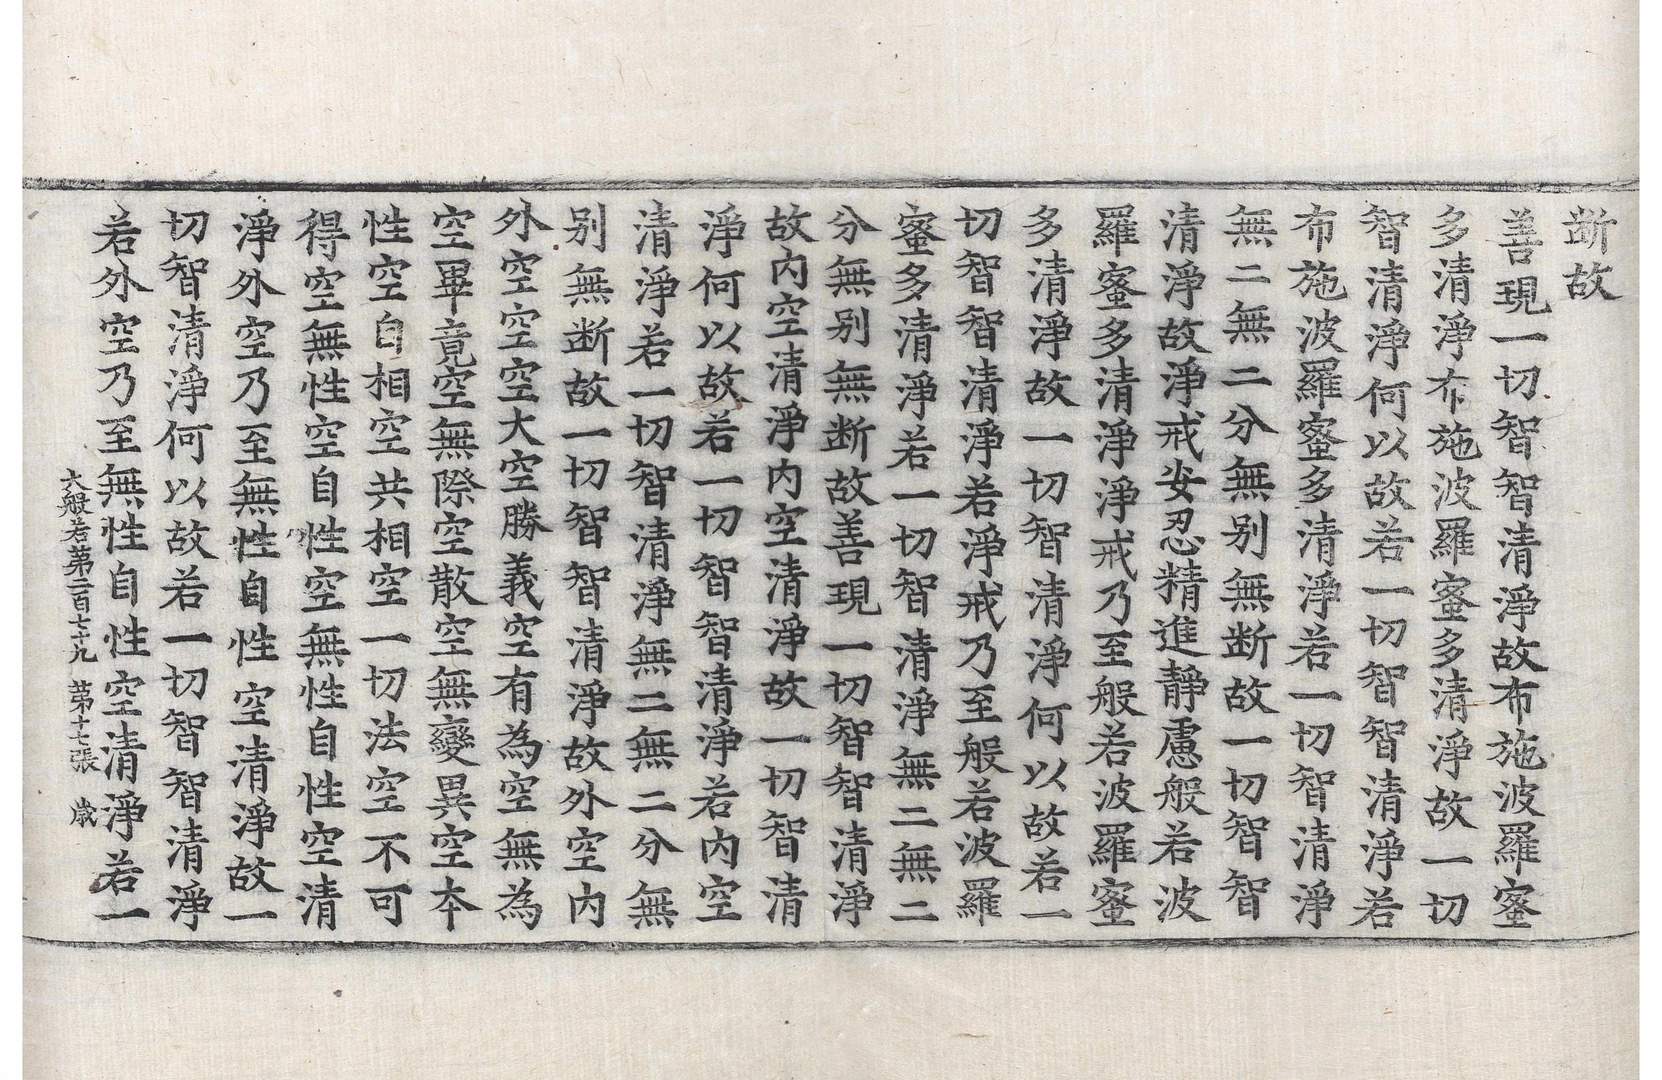 断故
善現一切智智清淨故布施波羅蜜
多清淨布施波羅蜜多清淨故一切
智清淨何以故若一切智智清淨若
布施波羅蜜多清淨若一切智清淨
無二無二分無别無断故一切智智
清淨故淨戒安忍精進靜慮般若波
羅蜜多清淨淨戒乃至般若波羅蜜
多清淨故一切智清淨何以故若一
切智智清淨若淨戒乃至般若波羅
蜜多清淨若一切智清淨無二無二
分無别無断故善現一切智智清淨
故内空清淨内空清淨故一切智清
淨何以故若一切智智清淨若内空
清淨若一切智清淨無二無二分無
别無断故一切智智清淨故外空内
外空空空大空勝義空有為空無為
空畢竟空無際空散空無變異空本
性空自相空共相空一切法空不可
得空無性空自性空無性自性空清
淨外空乃至無性自性空清淨故一
切智清淨何以故若一切智智清淨
若外空乃至無性自性空清淨若一
大般若第二百七十九 第十七張 歲